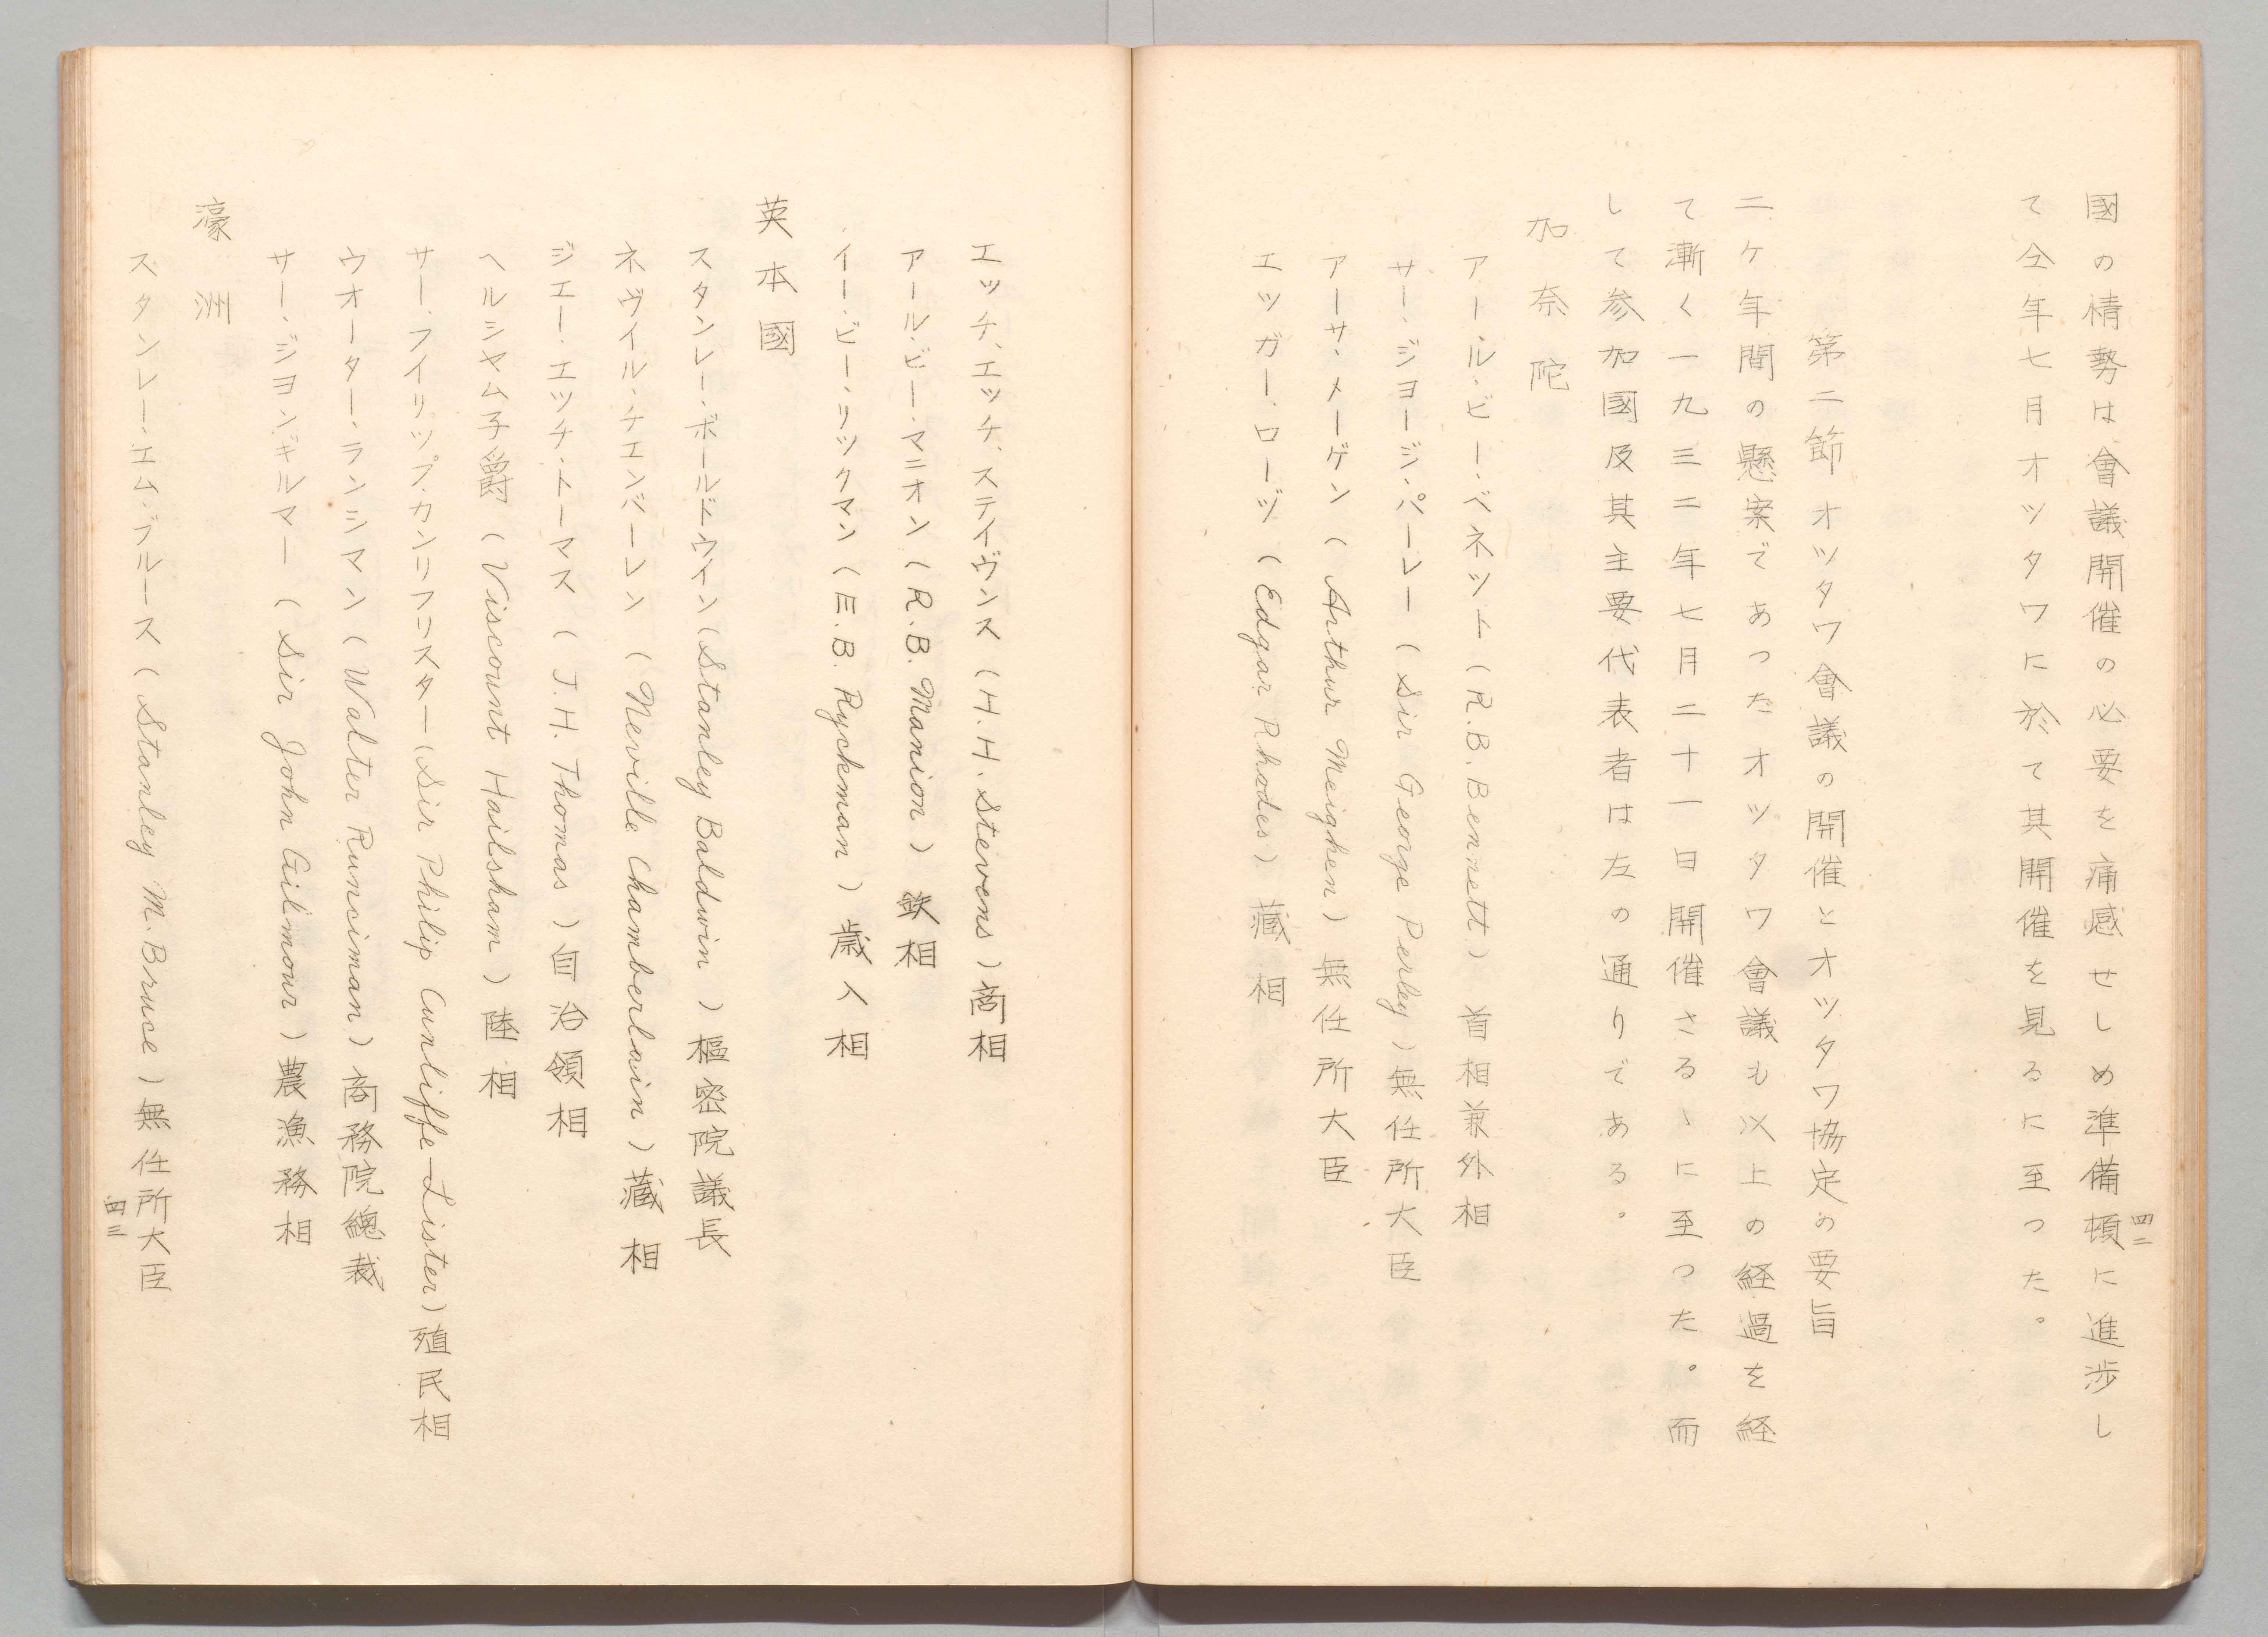 國の情勢は會議開催の必要を痛感せしめ準備頓に進歩し
て仝年七月オツタワに於て其開催を見るに至つた。
第二節 オツタワ會議の開催とオツタワ協定の要旨
二ケ年間の懸案であつたオツタワ會議も以上の経過を経
て漸く一九三二年七月二十一日開催さるゝに至つた。而
して参加國及其主要代表者は左の通りである。
加奈陀
アール・ビー・ベネツト(R.B.Bennett) 首相兼外相
サー・ジヨージ・パーレー(Sir George Perley)無任所大臣
アーサ・メーゲン(Arthur Meighen)無任所大臣
エツガー・ロージ(Edgar Rhodes) 蔵相
四二
エツチ、エツチ、ステイヴンス(H.H.Stevens)商相
アール・ビー・マニオン(R.B.Manion) 鉄相
イー・ビー・リツクマン(E.B.Ryckman)歳入相
英本國
スタンレー・ボールドウイン(Stanley Baldwin)樞密院議長
ネヴイル・チエンバーレン(Neville Chamberlain)蔵相
ジエー・エツチ・トーマス(J.H.Thomas)自治領相
ヘルシヤム子爵(Viscount Hailsham)陸相
サー・フイリツプ・カンリフ=リスター(Sir Philip Cunliffe-Lister)殖民相
ウオーター・ランシマン(Walter Runciman)商務院總裁
サー・ジヨン・ギルマー(Sir John Gilmour)農漁務相
濠洲
スタンレー・エム・ブルース(Stanley M.Bruce)無任所大臣
四三